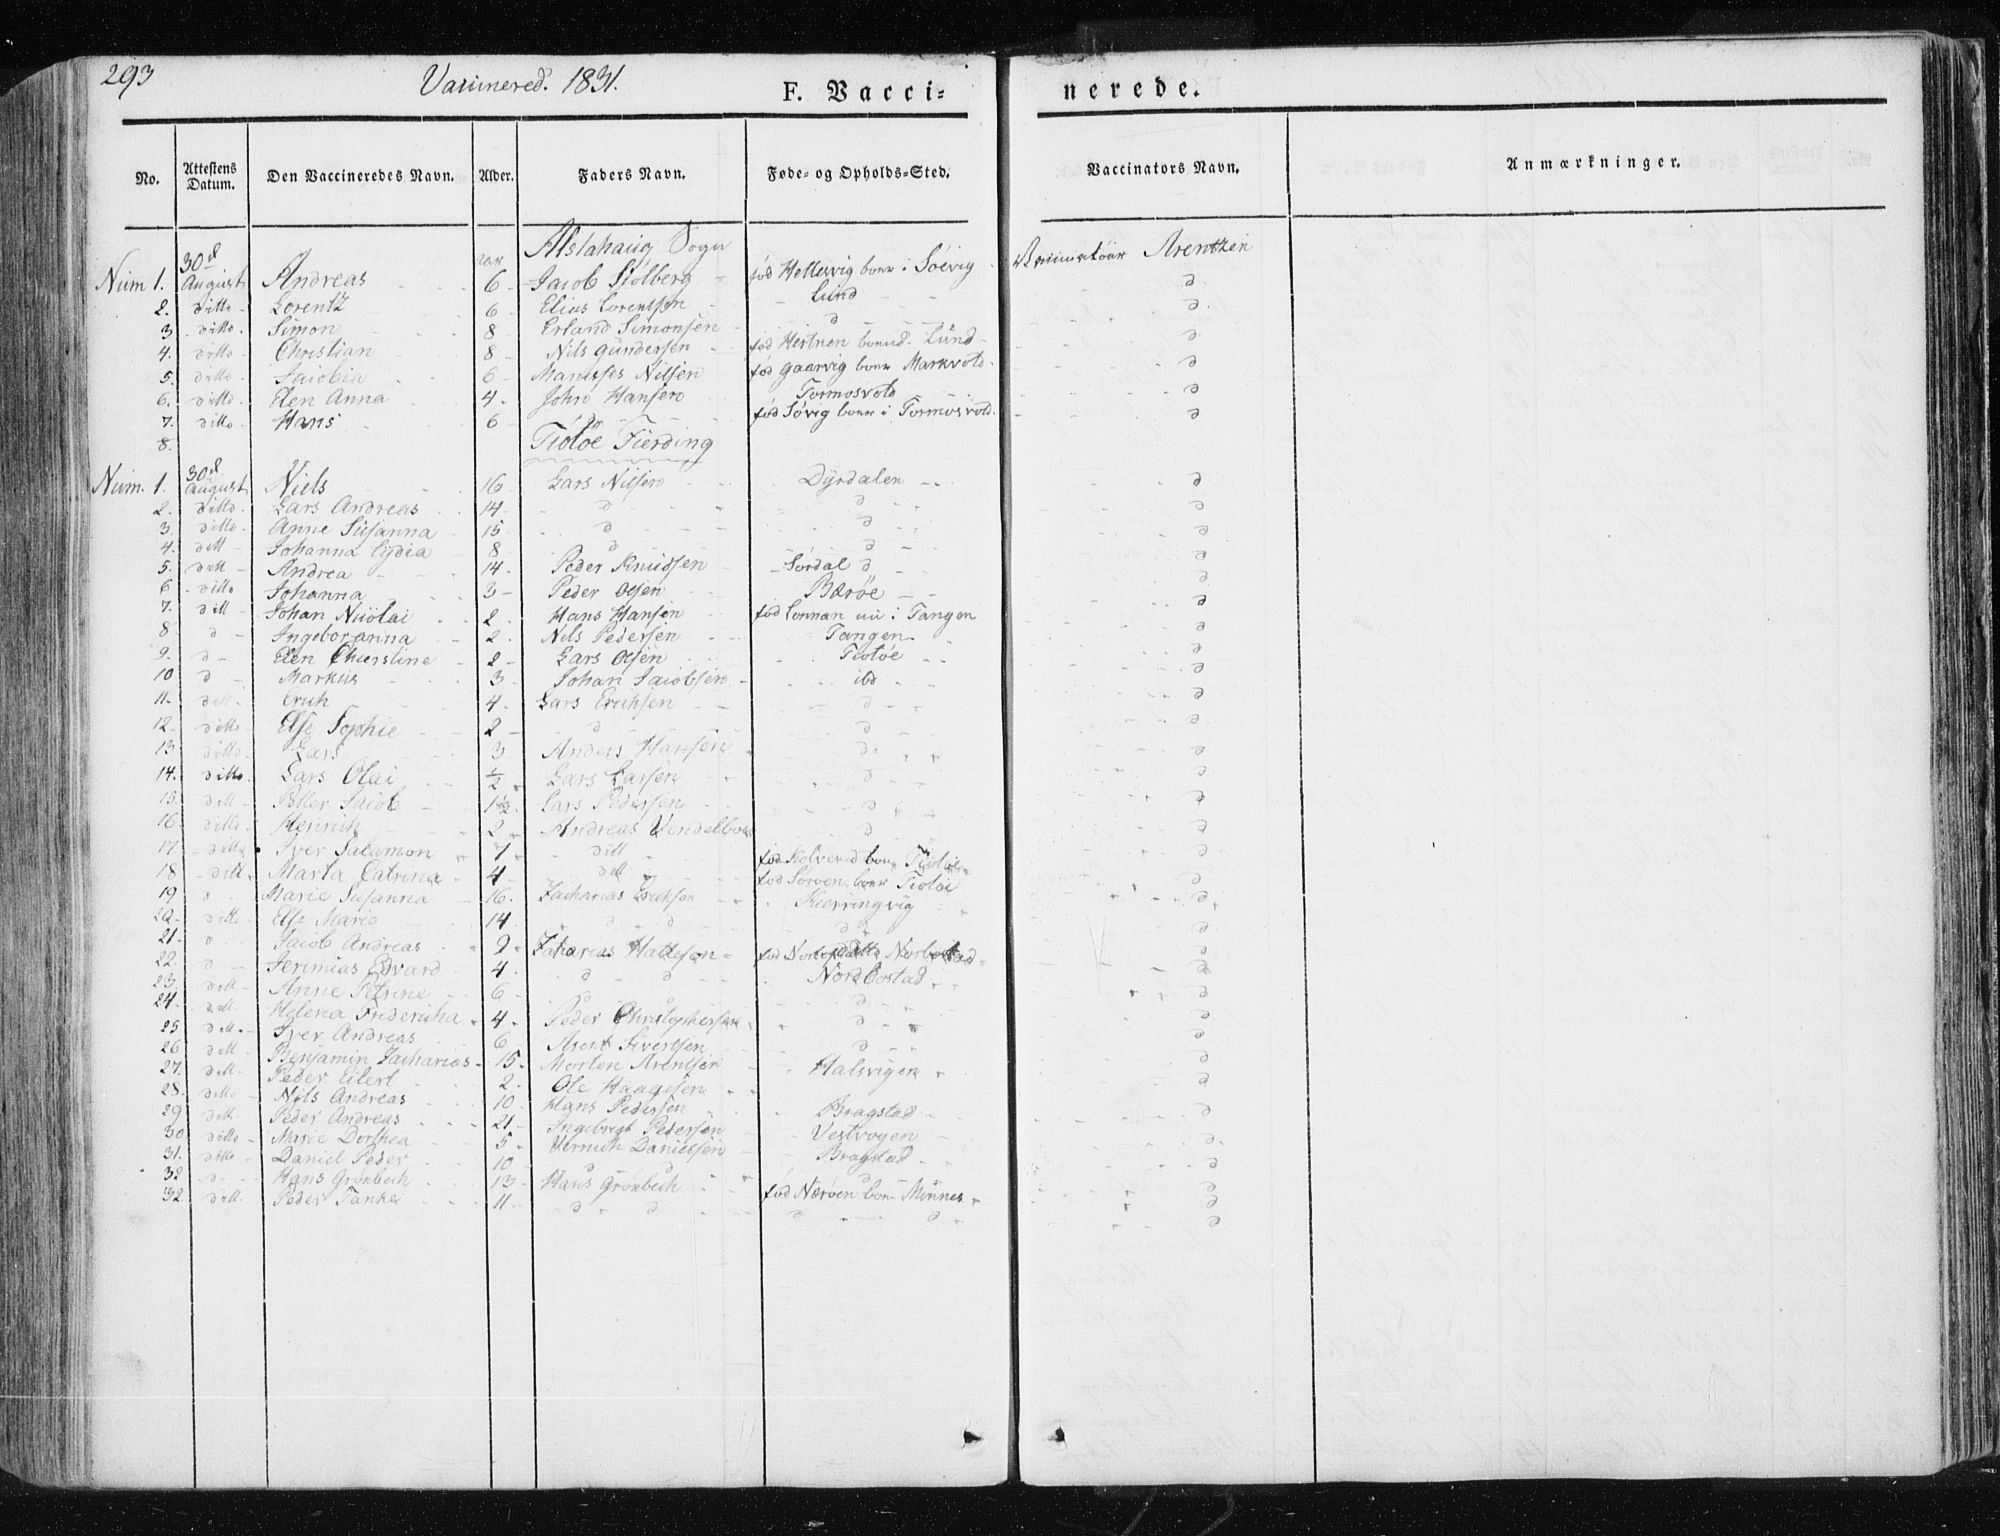 293 Vaccinered. 1831. F. Vacci= nerede.
No. Attestens Datum. Den Vaccineredes Navn. Alder. Faders Navn. Føde- og Opholds-Sted. Vaccinators Navn. Anmærkninger.
Alstahaug Sogn
Num 1. 30d August Andreas 6 Jacob Sjølberg fød Hellesvig boer i Søevig Vaccinatøur Arentzen
2. ditto Lorentz 6 Elias Lorentsen Lund e
3 ditto Simon 8 Erland Simonsen d e
4. ditto Christian 8 Nils Gundersen fød Hestnen Lund e
5. ditto Jacobia 6 Nilsen fød Gaarvig boer Markvold e
6. ditto Elen Anna 4 John Hansen Tormosvold e
7. ditto Hans 6 d fød Søvig boer i Tormosvold e
8. Tiøtøe Fierding
Num. 1. 30d August Niels 16 Lars Nilsen Dyrdalen e
2. ditto Lars Andreas 14 d d e
3. ditto Anne Susanna 15 d d e
4. ditt Johanna Lydia 8 d d e
5. ditt Andrea 14. Peder Knudsen Sørdal d e
6 ditto Johanna 3 Peder Olsen Bærøe e
7. ditt Johan Nicolai 2 Hans Hansen fød i Tangen e
8. d Ingeboranna 2. Nils Pedersen Tangen e
9. d Elen Chierstine 2 Lars Olsen Tiotøe e
10 d Markus 3 Johan Jacobsen ibd e
11. ditt Erich 4 Lars Erichsen d e
12. ditto Else Sophie 2 d d e
13 ditto Lars 3 Anders Hansen do e
14. ditto. Lars Olai ½ Lars Larsen d e
15. ditt Petter Jacob 1½ Lars Pedersen d e
16. ditto Henrich 2 Andreas Vendelboe d e
17. ditto Iver Salamon 7 ditt fød boer Tiotøe e
18 ditt Marta Catrina 4 ditt fød boer Tiotøe e
19 d Marie Susanna 16. Zacharias Erickson Kierringvig e
20. ditto Else Marie 14 d d e
21. d Jacob Andreas 9 Zacharias fød e
22. d Jerimias Edvard 4. d d Nord Bostad e
23. ditt Anne Petrine 6 d d e
24. ditt Helena Fridericha 4. Peder Christophersen d e
25 ditt Iver Andreas 6 Arent Sivertsen d e
26 ditt Benjamin Zacharias 15. Morten Arentsen Halsvigen e
27. ditt Peder Eilert 2. Ole Haagesen e
28. ditto Nils Andreas 10 Hans Pedersen Bragstad e
29 ditt Peder Andreas 21 Ingebrigt Pedersen Vestvogen e
30 ditto Marie Dorthea 5 Danielsen Bragstad e
31. ditto Daniel Peder 10 d d e
32 d Hans Grønbech 13 Hans Grønbech fød Nærøen boer Minnes e
32. ditt Peder Tanke 11 d d d d e